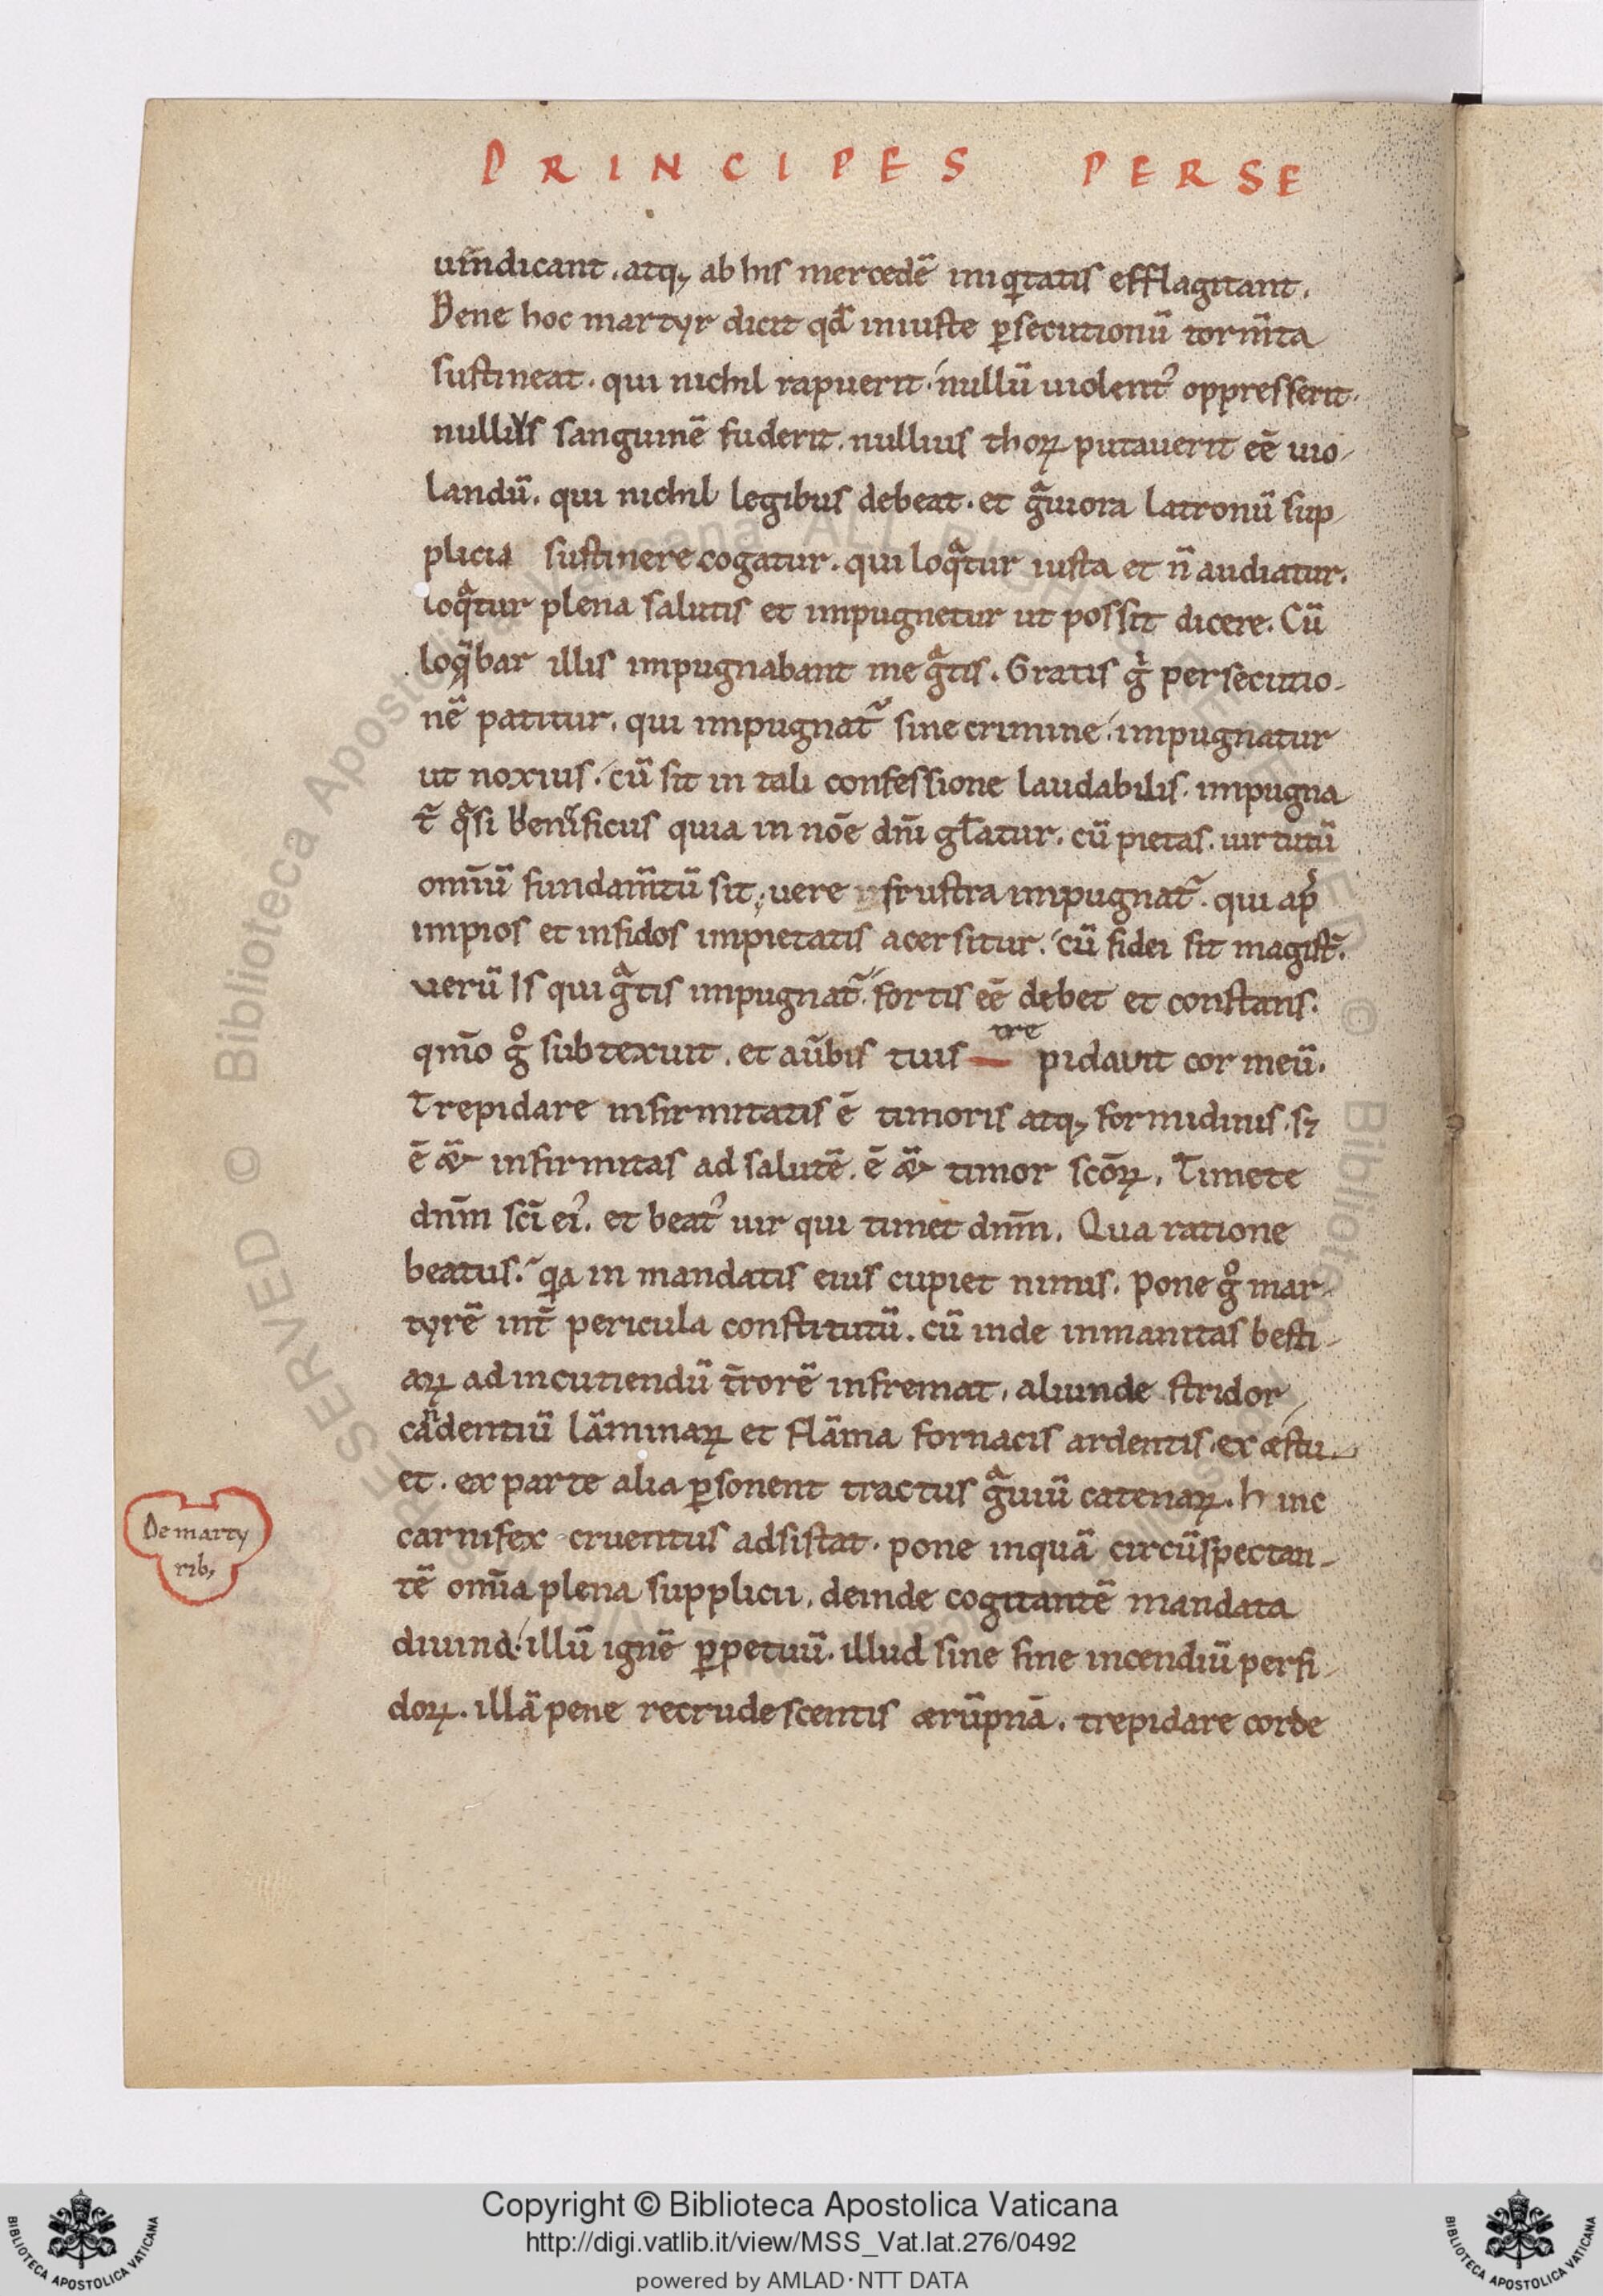 PRINCIPES PERSE
uīndicant. atq; ab his mercedē iniqͥtatis efflagitant.
Bene hoc martyr dicit qd̄ iniuste ꝑsecutionū torm̄ta
sustineat. qui nichil rapuerit. nullū uiolent᷒ oppresserit.
nullius sanguinē fuderit. nullius thoꝝ putauerit eē uio-
landū. qui nichil legibus debeat. et gͣuiora latronū sup-
plicia sustinere cogatur. qui loqͣtur iusta et n̄ audiatur.
loqͣtur plena salutis et impugnetur ut possit dicere. Cū
loqͣbar illis impugnabant me gͣtis. Gratis gͥ persecutio-
nē patitur. qui impugnat᷑ sine crimine. impugnatur
ut noxius. cū sit in tali confessione laudabilis. impugna
t᷑ qͣsi ueneficus quia in nōe dn̄i gl̄atur. cū pietas. uirtutū
omīū fundam̄tū sit. uere frustra impugnat᷑. qui ap᷒
impios et infidos impietatis acersitur. cū fidei sit magist᷑.
uerū is qui gͣtis impugnat᷑. fortis eē debet et constans.
qm̄o gͦ subtexuit. et aūbis tuis trepidauit cor meū.
Trepidare infirmitatis ē timoris atq; formidinis. sꝫ
ē &̄ infirmitas ad salutē. ē &̄ timor scōꝝ. Timete
dnm̄ sc̄i ei᷒. et beat᷒ uir qui timet dnm̄. Qua ratione
beatus. qͥa in mandatis eius cupiet nimis. Pone gͦ mar-
tyrē int̄ pericula constitutū. cū inde inmanitas besti-
aꝝ ad incutiendū t̄rorē infremat. aliunde stridor
candentiū lāminaꝝ et flāma fornacis ardentis exæstu-
et. ex parte alia ꝑsonent tractus gͣuiū catenaꝝ. hinc
carnifex cruentus adsistat. pone inquā circūspectan-
tē om̄ia plena supplicii. deinde cogitantē mandata
diuina. illū ignē ꝑpetuū. illud sine fine incendiū perfi-
doꝝ. illā pene recrudescentis ærūpnā. trepidare corde
De marty
rib;
Copyright © Biblioteca Apostolica Vaticana
http://digi.vatlib.it/view/MSS_Vat.lat.276/0492
powered by AMLAD·NTT DATA
BIBLIOTECA APOSTOLICA VATICANA
BIBLIOTECA APOSTOLICA VATICANA